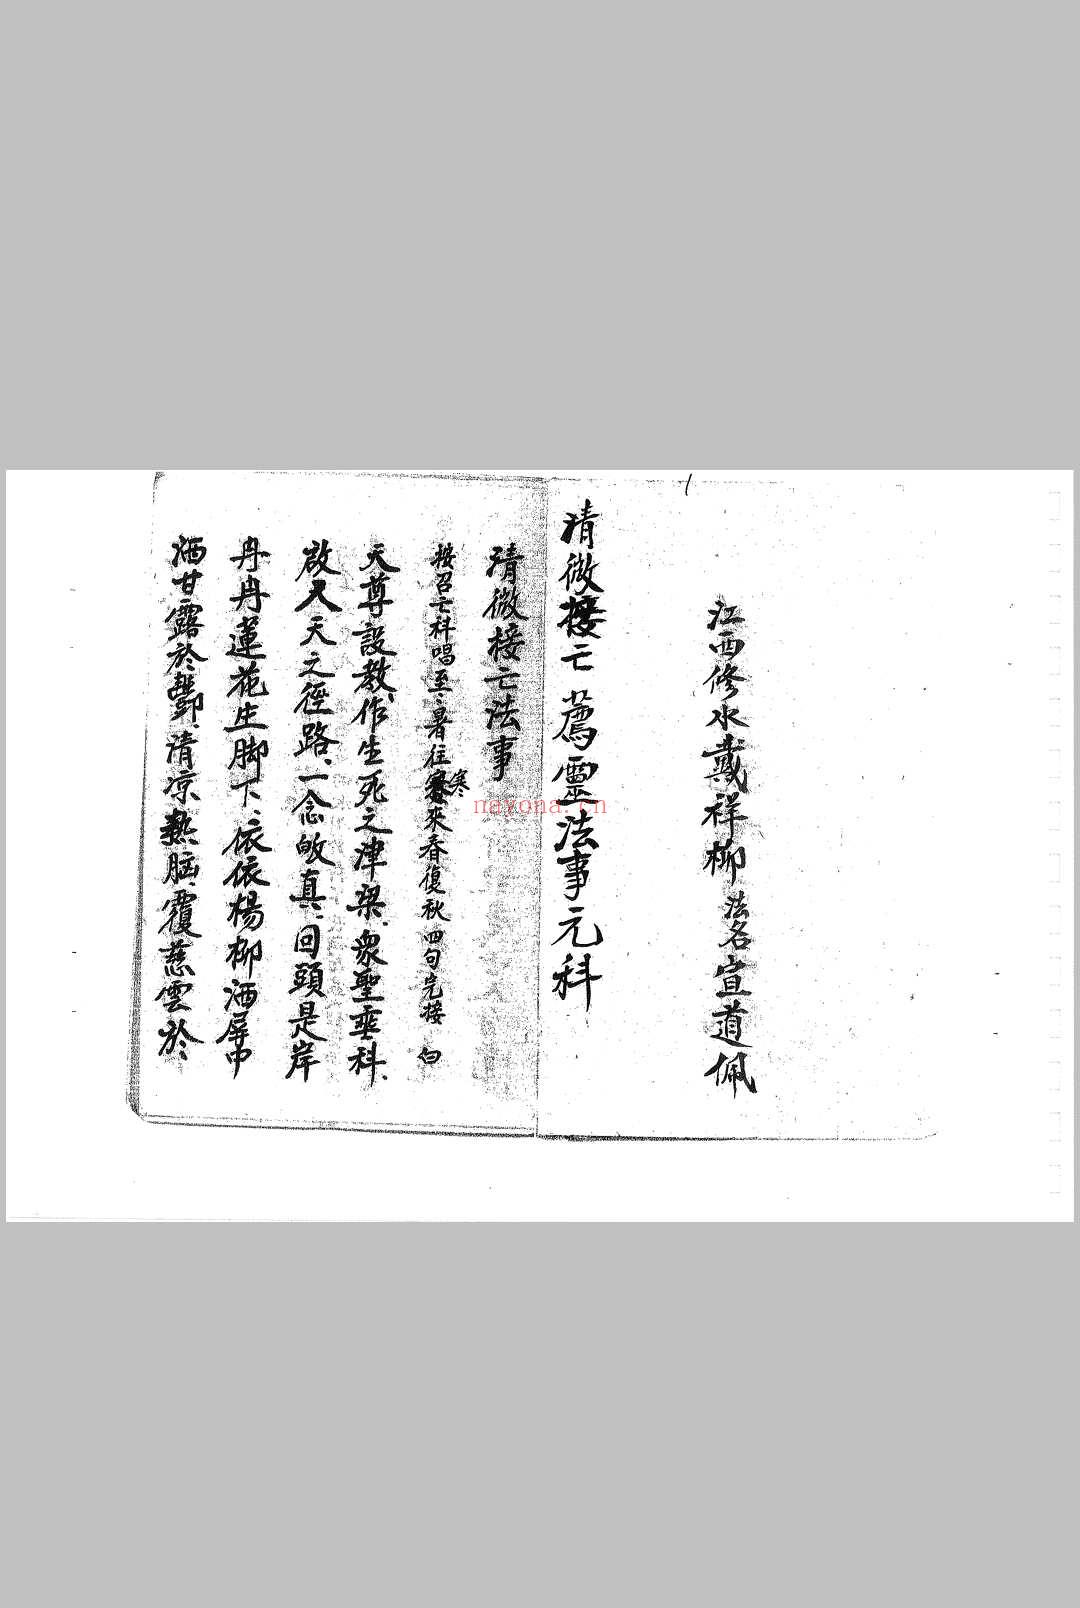 江西修水戴祥柳 法名宣道佩
清微接亡薦靈法事元科
清微接亡法事
按召亡科唱至、暑往寒來春復秋 四句完接 白
寒
天尊設教、作生死之津梁、眾聖垂科、
啟人天之徑路、一念皈真、回頭是岸
冉冉蓮花生脚下、依依楊柳洒屏中
洒甘露於酆、清凉熱腦、覆慈雲於
nayona.cn